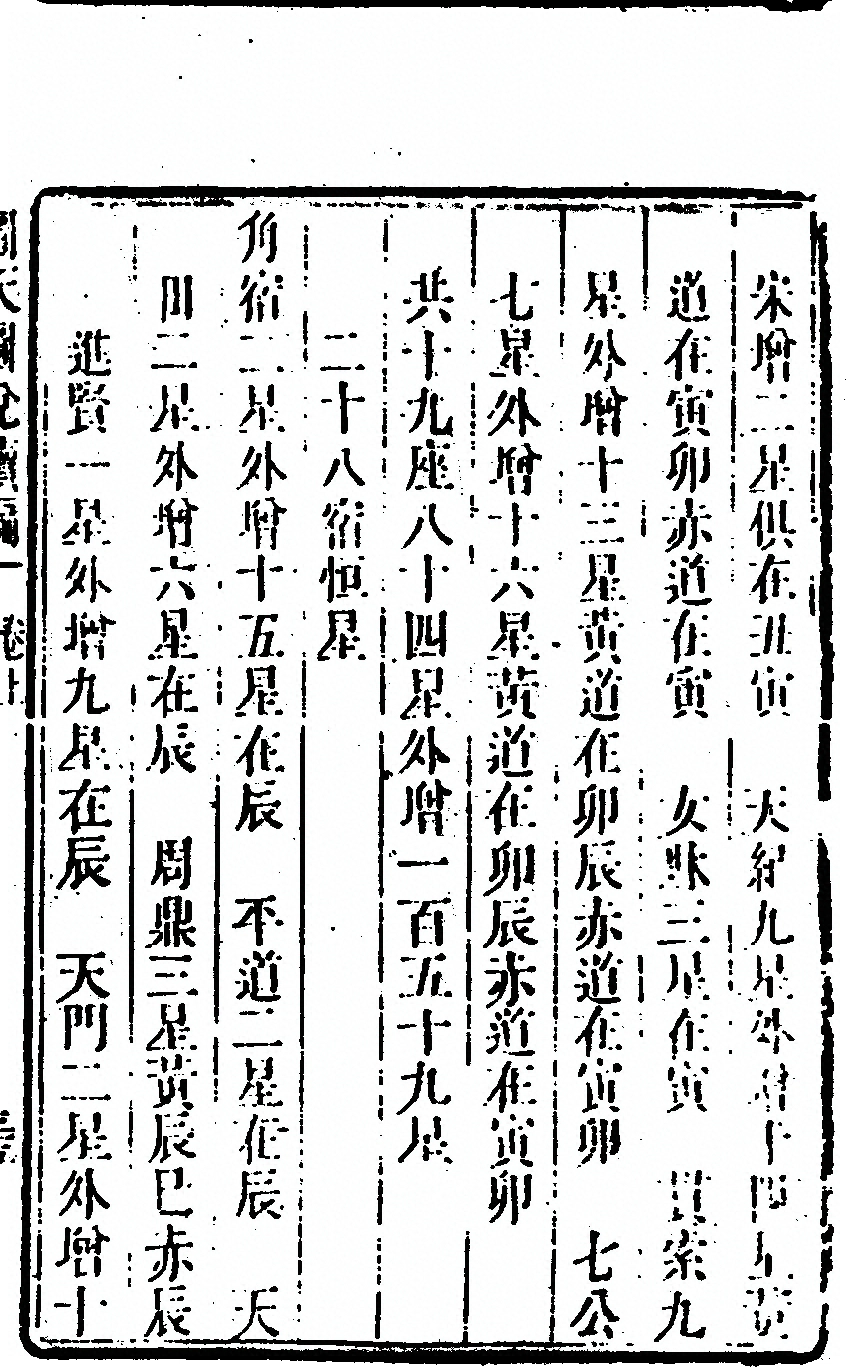 宋增二星俱在丑寅　天紀九星外增十四星黃
道在寅卯赤道在寅　女牀三星在寅　貫索九
星外增十三星黃道在卯辰赤道在寅卯　七公
七星外增十六星黃道在卯辰赤道在寅卯
共十九座八十四星外增一百五十九星
二十八宿恒星
角宿二星外增十五星在辰　平道二星在辰　天
田二星外增六星在辰　周鼎三星黃辰巳赤辰
進賢一星外增九星在辰　天門二星外增十